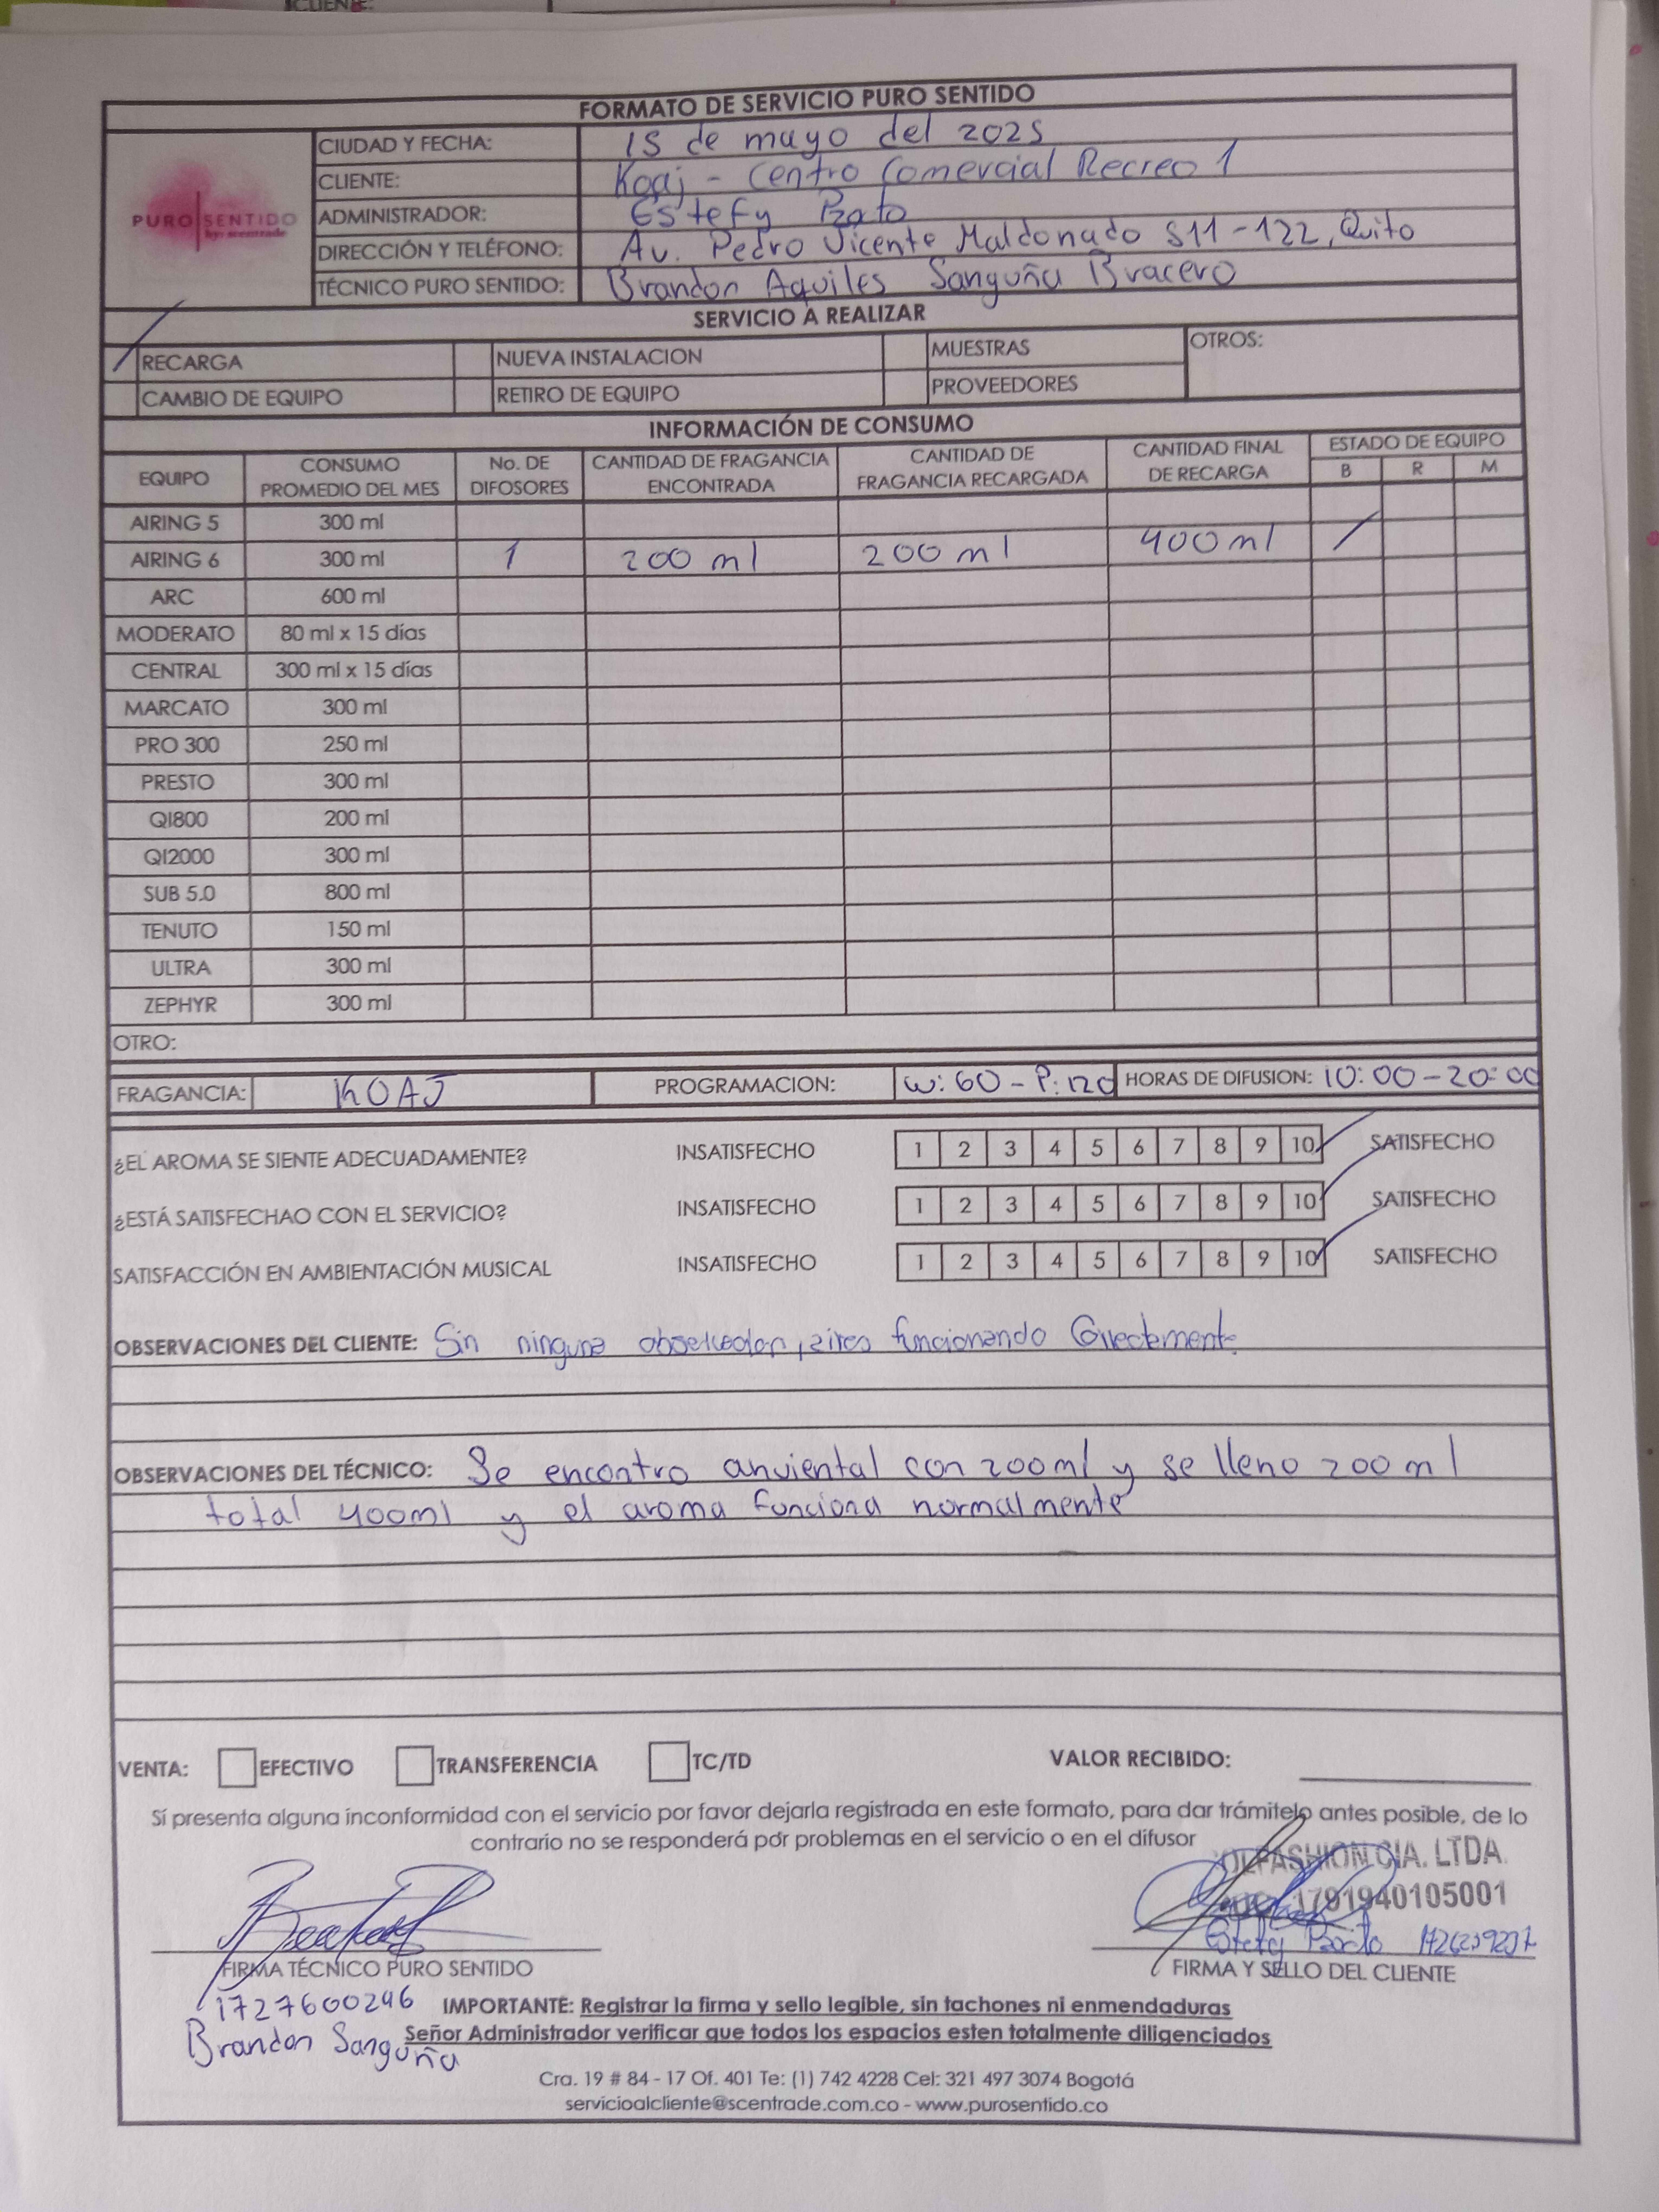 CLIENTE:
FORMATO DE SERVICIO PURO SENTIDO
PURO SENTIDO
by: scentrade
CIUDAD Y FECHA: 15 de mayo del 2025
CLIENTE: Koaj - Centro Comercial Recreo 1
ADMINISTRADOR: Estefy
DIRECCIÓN Y TELÉFONO: Av. Pedro Vicente Maldonado S11-122, Quito
TÉCNICO PURO SENTIDO: Brandon Aquiles Sanguña Bracero
SERVICIO A REALIZAR
RECARGA NUEVA INSTALACION MUESTRAS OTROS:
CAMBIO DE EQUIPO RETIRO DE EQUIPO PROVEEDORES
INFORMACIÓN DE CONSUMO
EQUIPO CONSUMO PROMEDIO DEL MES No. DE DIFOSORES CANTIDAD DE FRAGANCIA ENCONTRADA CANTIDAD DE FRAGANCIA RECARGADA CANTIDAD FINAL DE RECARGA ESTADO DE EQUIPO
B R M
AIRING 5 300 ml
AIRING 6 300 ml 1 200 ml 200 ml 400 ml
ARC 600 ml
MODERATO 80 ml x 15 días
CENTRAL 300 ml x 15 días
MARCATO 300 ml
PRO 300 250 ml
PRESTO 300 ml
QI800 200 ml
QI2000 300 ml
SUB 5.0 800 ml
TENUTO 150 ml
ULTRA 300 ml
ZEPHYR 300 ml
OTRO:
FRAGANCIA: KOAJ PROGRAMACION: W: 60 - P: 120 HORAS DE DIFUSION: 10:00 - 20:00
¿EL AROMA SE SIENTE ADECUADAMENTE? INSATISFECHO 1 2 3 4 5 6 7 8 9 10 SATISFECHO
¿ESTÁ SATISFECHAO CON EL SERVICIO? INSATISFECHO 1 2 3 4 5 6 7 8 9 10 SATISFECHO
SATISFACCIÓN EN AMBIENTACIÓN MUSICAL INSATISFECHO 1 2 3 4 5 6 7 8 9 10 SATISFECHO
OBSERVACIONES DEL CLIENTE: Sin ninguna funcionando
OBSERVACIONES DEL TÉCNICO: Se encontro anviental con 200ml y se lleno 200 ml
total 400ml y el aroma funciona normalmente
VENTA: EFECTIVO TRANSFERENCIA TC/TD VALOR RECIBIDO:
Sí presenta alguna inconformidad con el servicio por favor dejarla registrada en este formato, para dar trámitelo antes posible, de lo
contrario no se responderá por problemas en el servicio o en el difusor
CIA. LTDA.
1791940105001
FIRMA TÉCNICO PURO SENTIDO FIRMA Y SELLO DEL CLIENTE
1727600246 IMPORTANTE: Registrar la firma y sello legible, sin tachones ni enmendaduras
Brandon Sanguña Señor Administrador verificar que todos los espacios esten totalmente diligenciados
Cra. 19 # 84 - 17 Of. 401 Te: (1) 742 4228 Cel: 321 497 3074 Bogotá
servicioalcliente@scentrade.com.co - www.purosentido.co